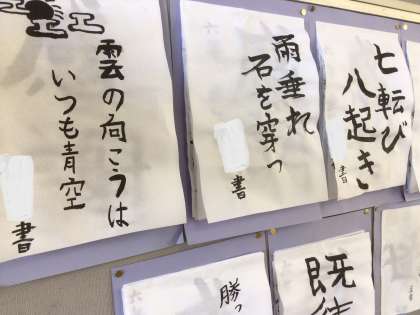 七転び
八起き
書
雨垂れ
石を穿つ
書
雲の向こうは
いつも青空
書
既
勝っ